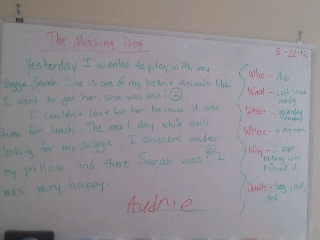 The Missing Dog
5-22-12
Yesterday I wanted to play with my
doggie Sarah. She is one of my beanie animals. When
I went to get her, she was lost!
I couldn't look for her because it was
time for lunch. The next day while still
looking for my doggie, I checked under
my pillow and there Sarah was! I
was very happy.
Audrie
Who - Me
What - Lost
When - yesterday
Where - in my room
Why - I kept
looking until
I found it
Details -